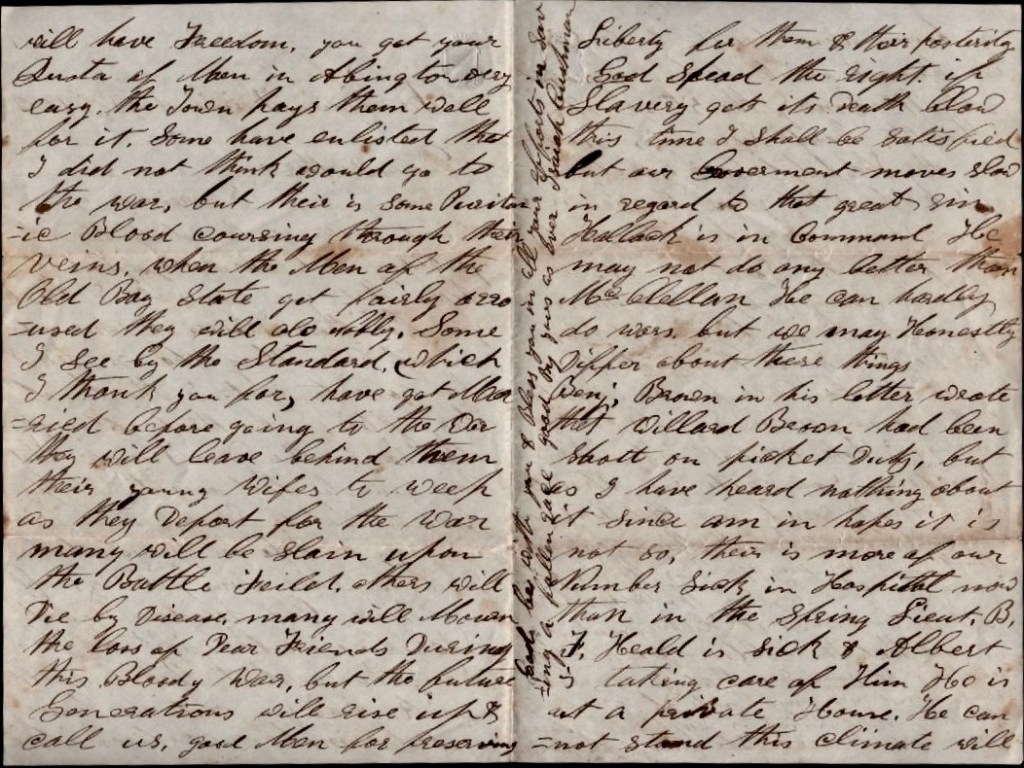 will have Freedom, you got your
Quota of Men in Abington very
easy. the Town pays them well
for it. Some have enlisted that
I did not think would go to
the war, but their is some Puritan
=ic Blood coursing through their
veins. when the Men of the
Old Bay State get fairly arro
=used they will do nobly. Some
I see by the Standard, (which
I thank you for, have got Mar
=ried before going to the War
they will leave behind them
their young Wifes to weep
as they Depart for the War
many will be slain upon
the Battle Feild, others will
Die by Disease, many will Mourn
the loss of Dear Friends During
this Bloody War, but the future
Generations will rise up &
call us, good Men for preserving
Liberty for them & their posterity
God Spead the right. if
Slavery gets its Death blow
this time I shall be satisfied
but our Goverment moves slow
in regard to that great sin
Hallack is in Command He
may not do any better than
McClellan He can hardly
do wors. but we may Honestly
Differ about these things
Benj, Brown in his letter wrote
that Willard Beson had been
Shott on picket Duty, but
as I have heard nothing about
it since am in hopes it is
not so, their is more of our
Number Sick in Hospital now
than in the Spring Lieut. B.
F. Heald is Sick & Albert
is taking care of Him He is
at a private House. He can
=not stand this climate will
peace bee with you & Bless you in all your Efforts in Sav
=ing a fallen race good by yours as Ever